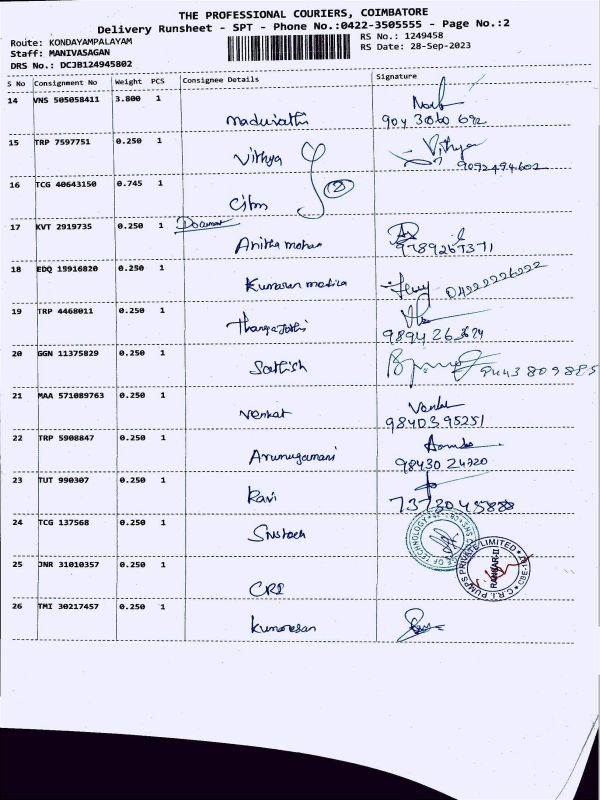 THE PROFESSIONAL COURIERS, COIMBATORE
Delivery Runsheet - SPT - Phone No.:0422-3505555 - Page No.:2
Route: KONDAYAMPALAYAM
Staff: MANIVASAGAN
DRS No.: DCJB124945802
RS No.: 1249458
RS Date: 28-Sep-2023
S No Consignment No Weight PCS Consignee Details Signature
14 VNS 505058411 3.800 1
Maduvathi 904 3060 692
15 TRP 7597751 0.250 1
Vithya Vithya
9092494602
16 TCG 40643150 0.745 1
2
17 KVT 2919735 0.250 1 Document
Anitha mohan 9789267371
18 EDQ 15916820 0.250 1
Kumaran 04222226222
19 TRP 4468011 0.250 1
Thangajothi 9894263624
20 GGN 11375829 0.250 1
Sathish 9443809885
21 MAA 571089763 0.250 1
Venkat Venkat
9840395251
22 TRP 5908847 0.250 1
Arumugamani 98430 24720
23 TUT 990307 0.250 1
Ravi 7373045888
24 TCG 137568 0.250 1
OF TECHNOLOGY SNS
25 JNR 31010357 0.250 1
CRI C.R.I. PUMPS PRIVATE LIMITED
26 TMI 30217457 0.250 1
Kumaresan